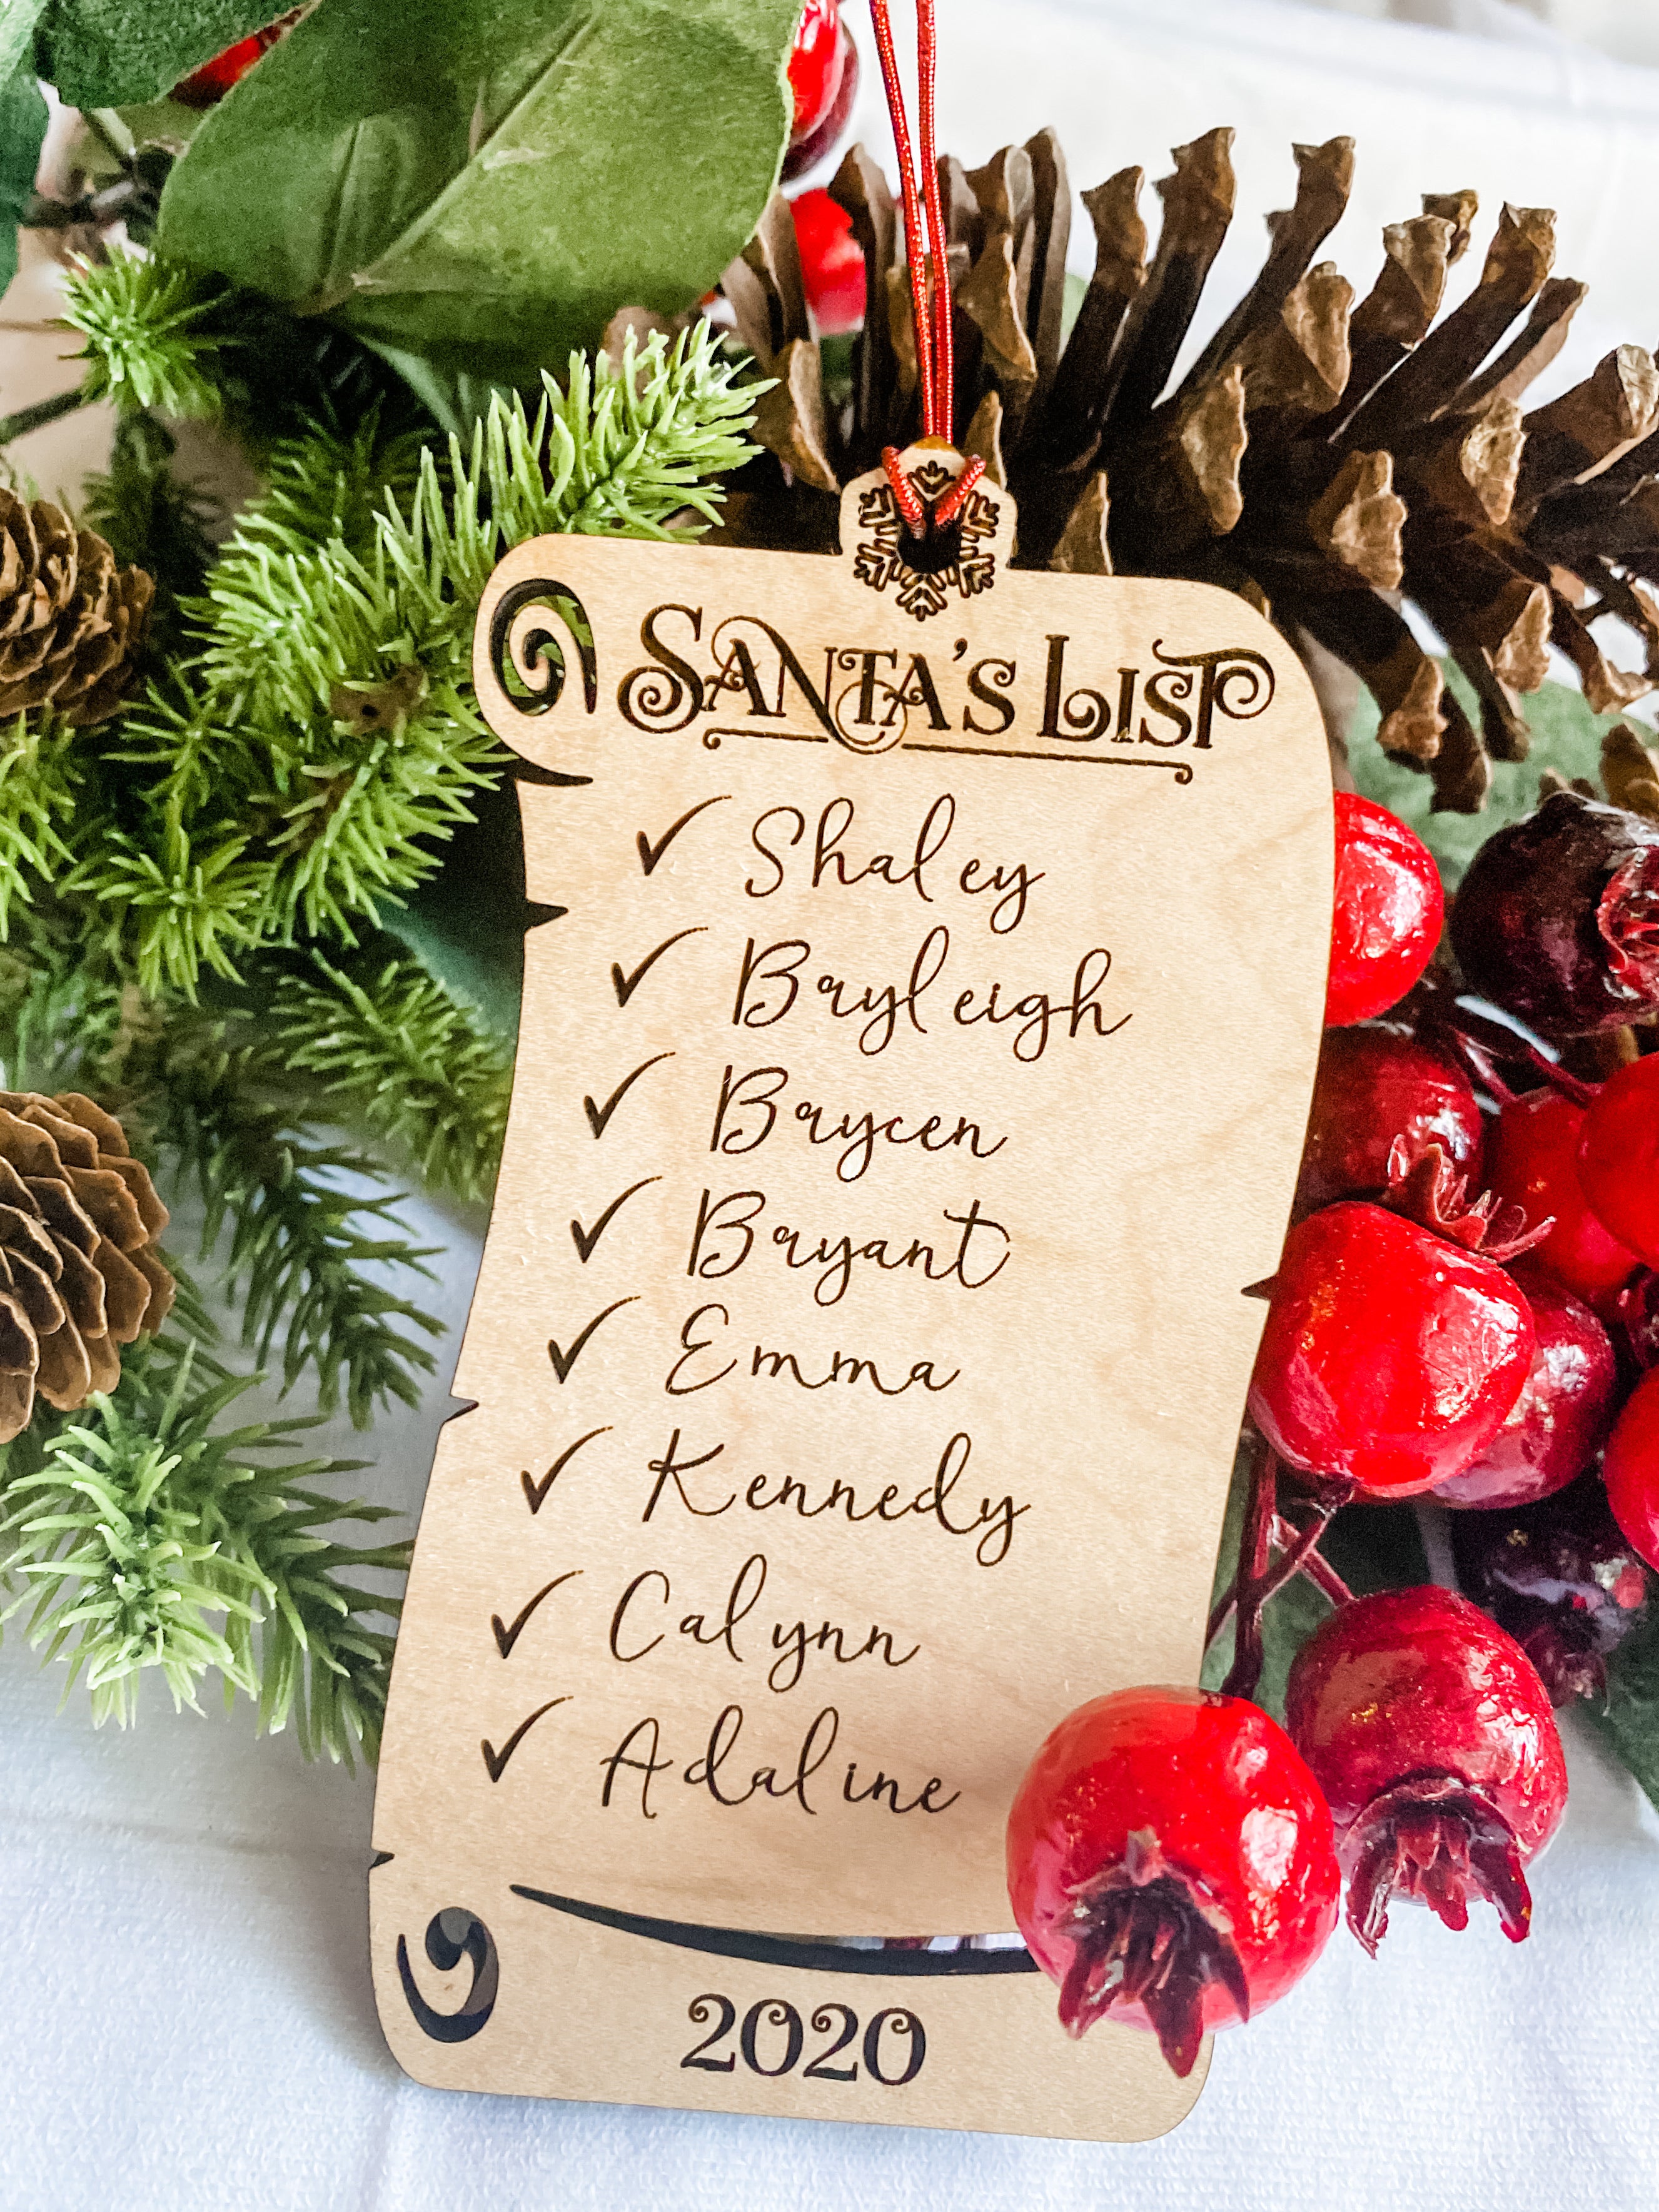 SANTA'S LIST
✓ Shaley
✓ Bryleigh
✓ Brycen
✓ Bryant
✓ Emma
✓ Kennedy
✓ Calynn
✓ Adaline
2020